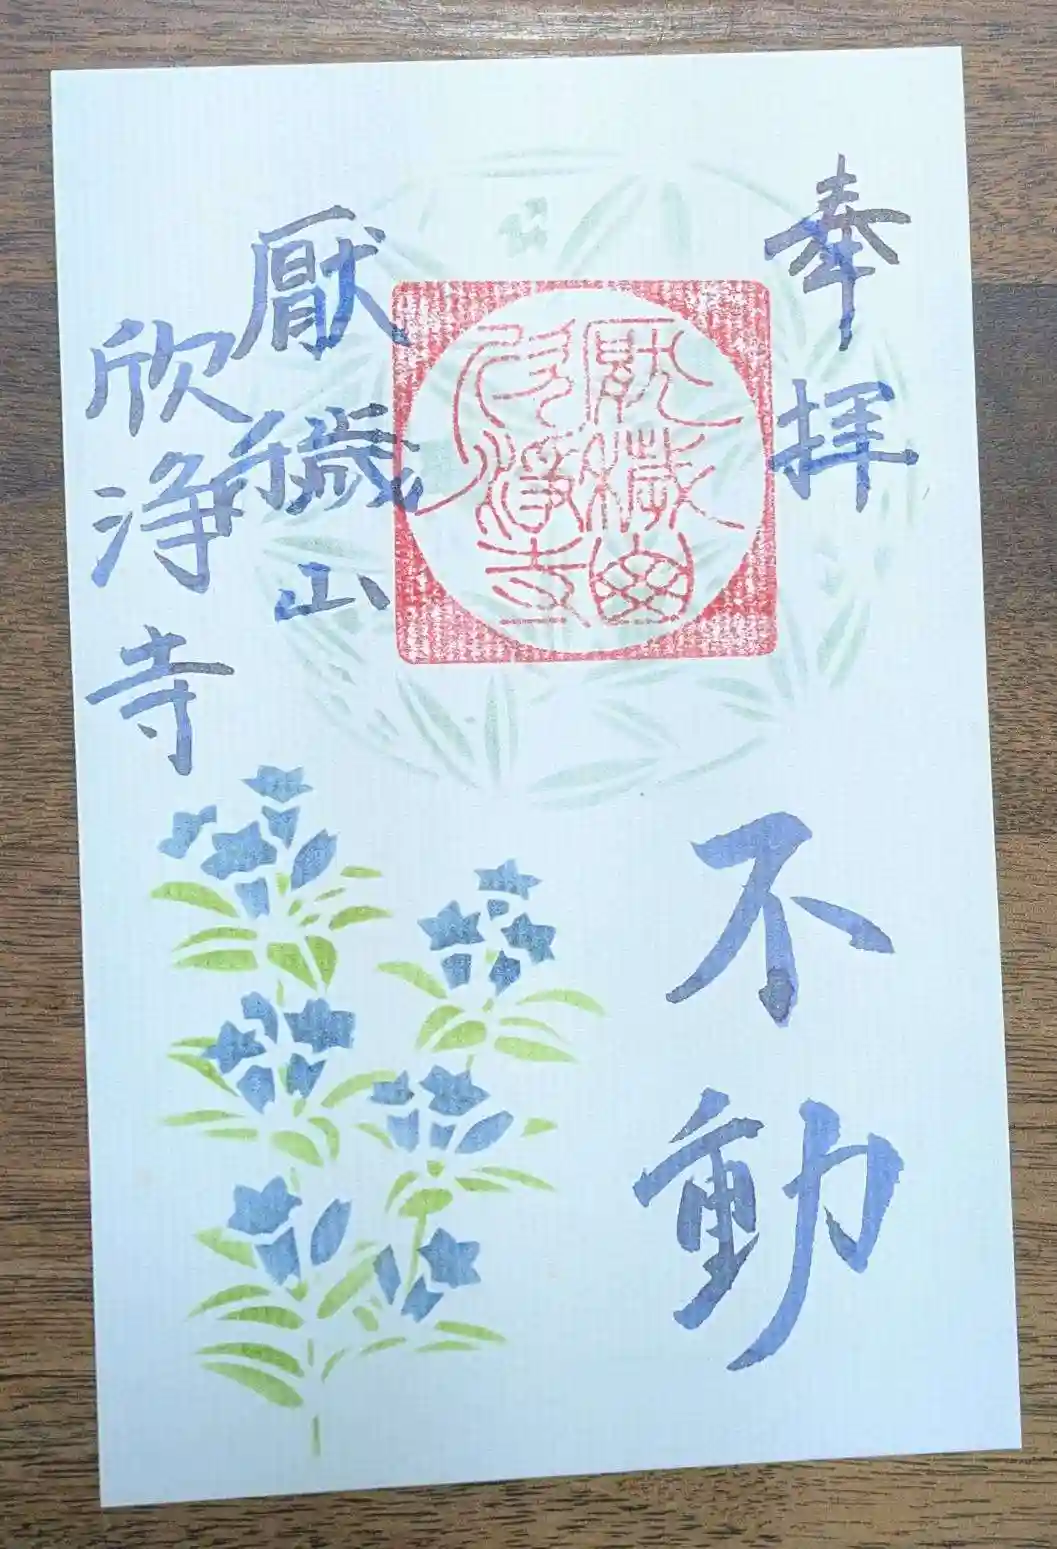 奉拝
不動
厭穢山
欣浄寺
厭穢山
欣浄寺